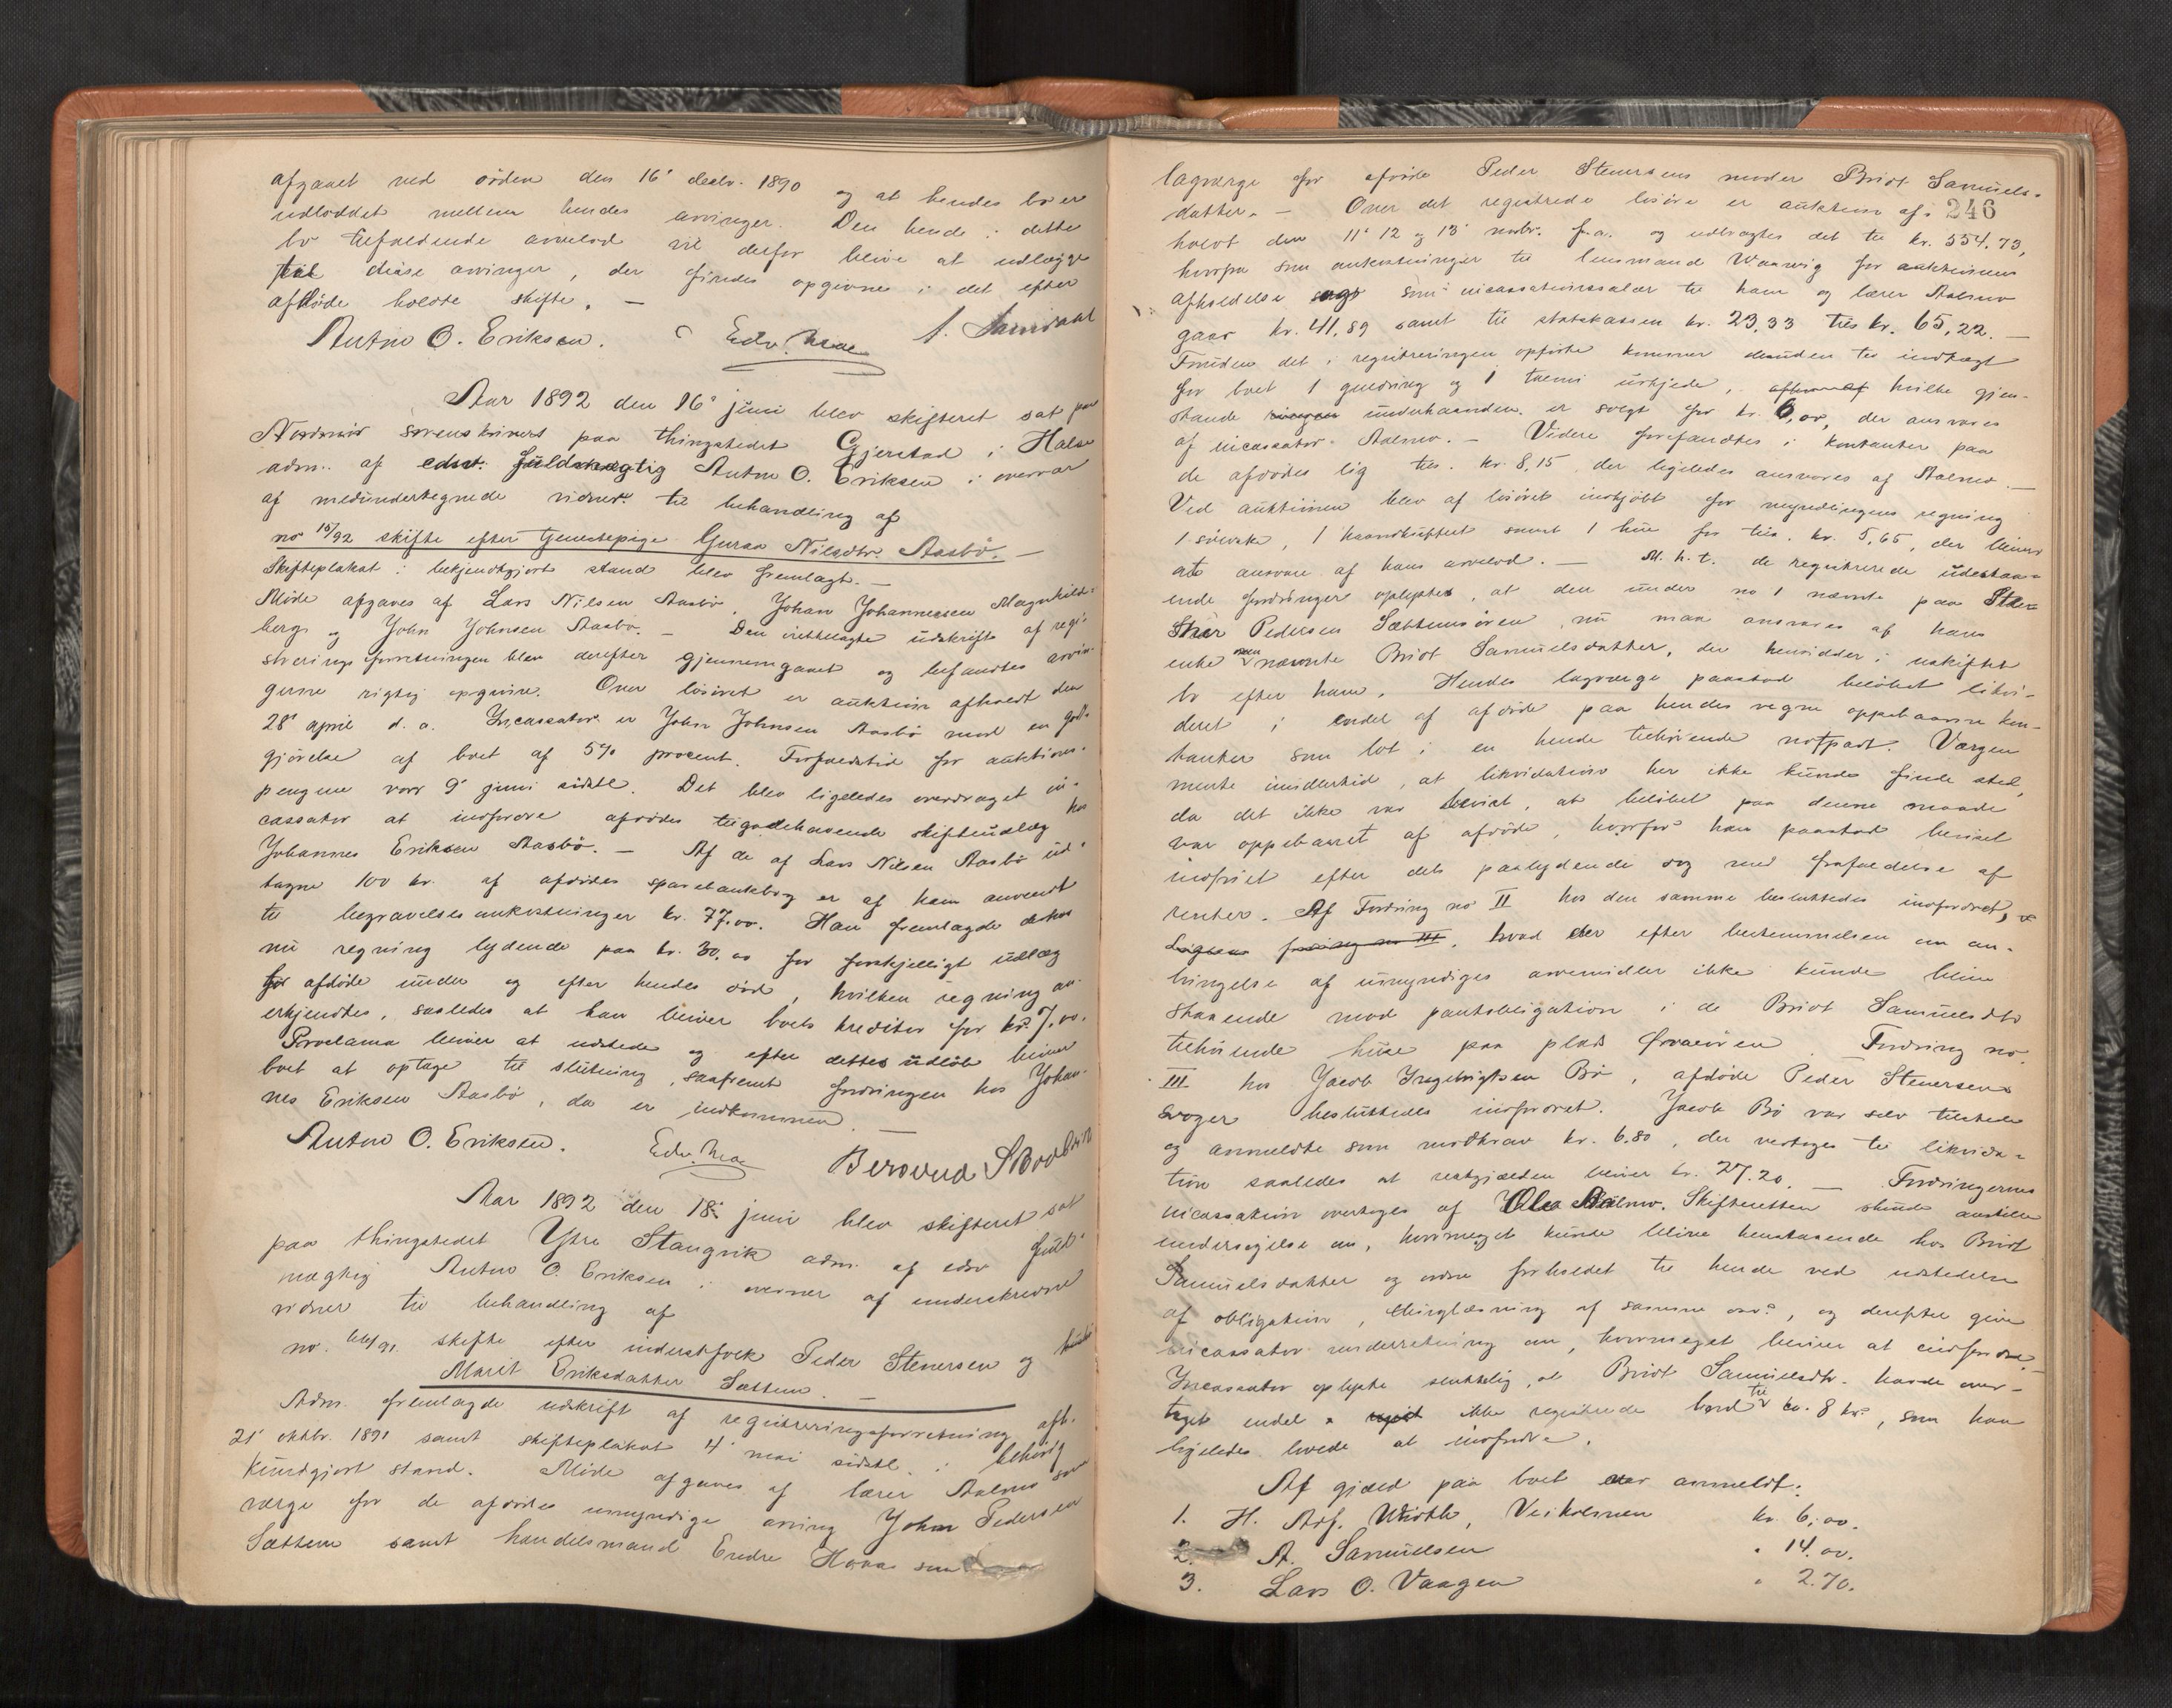 afgaaet ved døden den 16' decbr. 1890 og at hendes bo er
udloddet mellem hendes arvinger. Den hende i dette
bo tilfaldende arvelod vil derfor blive at udlægge
til disse arvinger, der findes opgivne i det efter
afdøde holdte skifte. —
Anton O. Eriksen. Edv. Moe
Aar 1892 den 16' juni blev skifteret sat paa
Nordmør sorenskriveri paa thingstedet Gjerstad i Halse
adm. af edsv. fuldmægtig Anton O. Eriksen i overvær
af medundertegnede vidner til behandling af
no 15/92 skifte efter tjenestepige Guraa Nilsdtr. Aasbø. —
Skifteplakat i bekjendtgjort stand blev fremlagt. —
Møde afgaves af Lars Nilsen Aasbø, Johan Johannessen Magnhild-
berg og John Johnsen Aasbø. — Den irettelagte udskrift af regi-
streringsforretningen blev derefter gjennemgaaet og befandtes arvin-
gerne rigtig opgivne. Over løsøret er auktion afholdt den
28' april d. a. Incassator er John Johnsen Aasbø mod en godt-
gjørelse af boet af 5% procent. Forfaldstid for auktions-
pengene var 9' juni sidstl. Det blev ligeledes overdraget in-
cassator at indfordre afdødes tilgodehavende skifteudlæg hos
Johannes Eriksen Aasbø. — Af de af Lars Nilsen Aasbø ud-
tagne 100 kr. af afdødes sparebankbog er af ham anvendt
til begravelsesomkostninger kr. 77.00. Han fremlagde derhos
nu regning lydende paa kr. 30.00 for forskjelligt udlæg
for afdøde under og efter hendes død, hvilken regning an-
erkjendtes, saaledes at han bliver boets kreditor for kr. 7.00.
Proclama bliver at udstede og efter dettes udløb bliver
boet at optage til slutning, saafremt fordringen hos Johan-
nes Eriksen Aasbø, da er indkommen. —
Anton O. Eriksen. Edv. Moe
Aar 1892 den 18' juni blev skifteret sat
paa thingstedet Ytre Stangvik adm. af edsv. fuld-
mægtig Anton O. Eriksen i overvær af underskrevne
vidner til behandling af
no. skifte efter inderstfolk Peder Stenersen og
Marit Eriksdatter Sættem. —
Adm. fremlagde udskrift af registreringsforretning afh.
21' oktbr. 1891 samt skifteplakat 4' mai sidstl. i behørig
kundgjort stand. Møde afgaves af lærer Aalmo som
værge for de afdødes umyndige arving John Pedersen
Sættem samt handelsmand Endre Hovas som
246
lagværge for afdøde Peder Stenersens moder Briot Samuels-
datter. — Over det registrede løsøre er auktion af-
holdt den 11' 12 og 13' novbr. f. a. og udbragtes det til kr. 554.73,
hvorfra som omkostninger til lensmand Waarvig for auktionens
afholdelse som incassationssalær til ham og lærer Aalmo
gaar kr. 41,89 samt til statskassen kr. 23,33 tils kr. 65,22. —
Foruden det i registreringen opførte kommer desuden til indtægt
for boet 1 guldring og 1 urkjede, hvilke gjen-
stande underhaanden er solgt for kr. 6,00, der ansvares
af incassator Aalmo. — Videre forefandtes i kontanter paa
de afdødes lig tils. kr. 8,15, der ligeledes ansvares af Aalmo. —
Ved auktionen blev af løsøret indkjøbt for myndlingens regning
1 sølvske, 1 haandkuffert samt 1 hue for tils. kr. 5,65, der bliver
at ansvare af hans arvelod. — M. h. t. de registrerede udestaa-
ende fordringer oplystes, at den under no 1 nævnte paa
Pedersen Sættemsøren, nu maa ansvares af hans
enke nævnte Briot Samuelsdatter, der hensidder i uskiftet
bo efter ham. Hendes lagværge paastod beløbet likvi-
deret i endel af afdøde paa hendes vegne oppebaarne kon-
tanter som lot i en hende tilhørende notpart. Værgen
mente imidlertid, at likvidation her ikke kunde finde sted,
da det ikke var bevist, at beløbet paa denne maade
var oppebaaret af afdøde, hvorfor han paastod beviset
indfriet efter dets paalydende dog med frafaldelse af
renter. Fordring no II hos den samme besluttedes indfordret,
hvad der efter bestemmelsen om an-
bringelse af umyndiges arvemidler ikke kunde blive
staaende mod pantobligation i de Briot Samuelsdtr.
tilhørende huse paa plads . Fordring no.
III hos Jacob Ingebrigtsen Bø, afdøde Peder Stenersens
svoger besluttedes indfordret. Jacob Bø var selv tilstede
og anmeldte som modkrav kr. 6.80, der vedtoges til likvida-
tion saaledes at restgjælden bliver kr. 27.20. — Fordringernes
incassation overtoges af Ole Aalmo. Skifteretten skulde anstille
undersøgelse om, hvormeget kunde blive henstaaende hos Briot
Samuelsdatter og ordne forholdet til hende ved udstedelse
af obligation, thinglæsning af samme osv., og derefter give
incassator underretning om, hvormeget bliver at indfordre.
Incassator oplyste sluttelig, at Briot Samuelsdtr. havde over-
taget endel ikke registrerede bord til ca. 8 kr., som han
ligeledes lovede at indfordre.
Af gjæld paa boet var anmeldt:
1. H. Adf. Wirth, Veiholmen kr. 6.00.
2. A. Samuelsen " 14.00.
3. Lars O. Vaagen " 2.70.